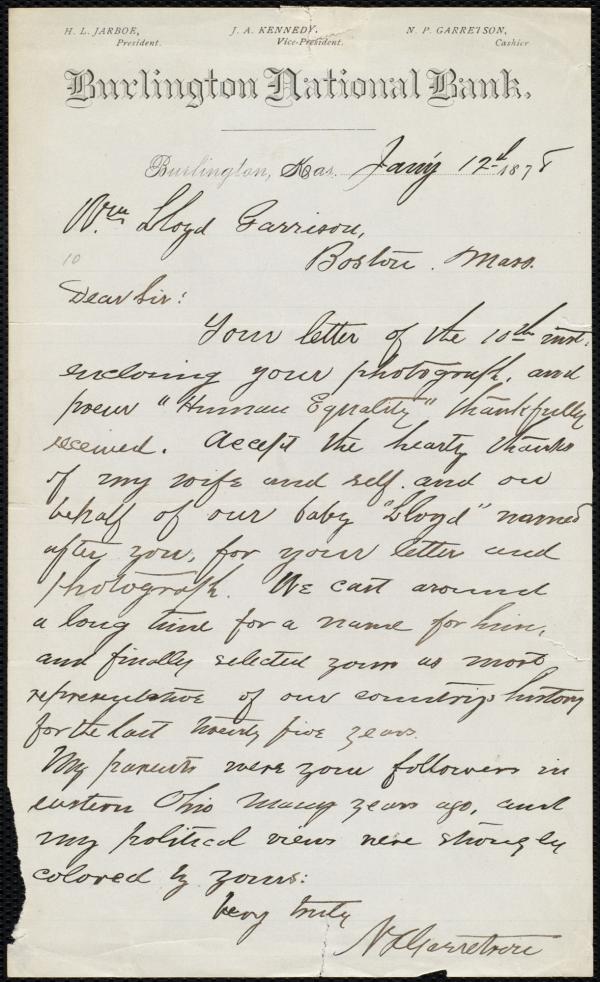 H. L. JARBOE, J. A. KENNEDY, N. P. GARRETSON,
President. Vice-President. Cashier
Burlington National Bank.
Burlington, Kas. Jan'y 12th 1878
Wm Lloyd Garrison,
Boston. Mass.
10
Dear Sir:
Your letter of the 10th inst.
enclosing your photograph, and
poem "Human Equality" thankfully
received. Accept the hearty thanks
of my wife and self and on
behalf of our baby "Lloyd" named
after you, for your letter and
photograph. We cast around
a long time for a name for him,
and finally selected yours as most
representative of our country's history
for the last twenty five years.
My parents were your followers in
eastern Ohio many years ago, and
my political views were strongly
colored by yours:
Very truly
N P Garretson